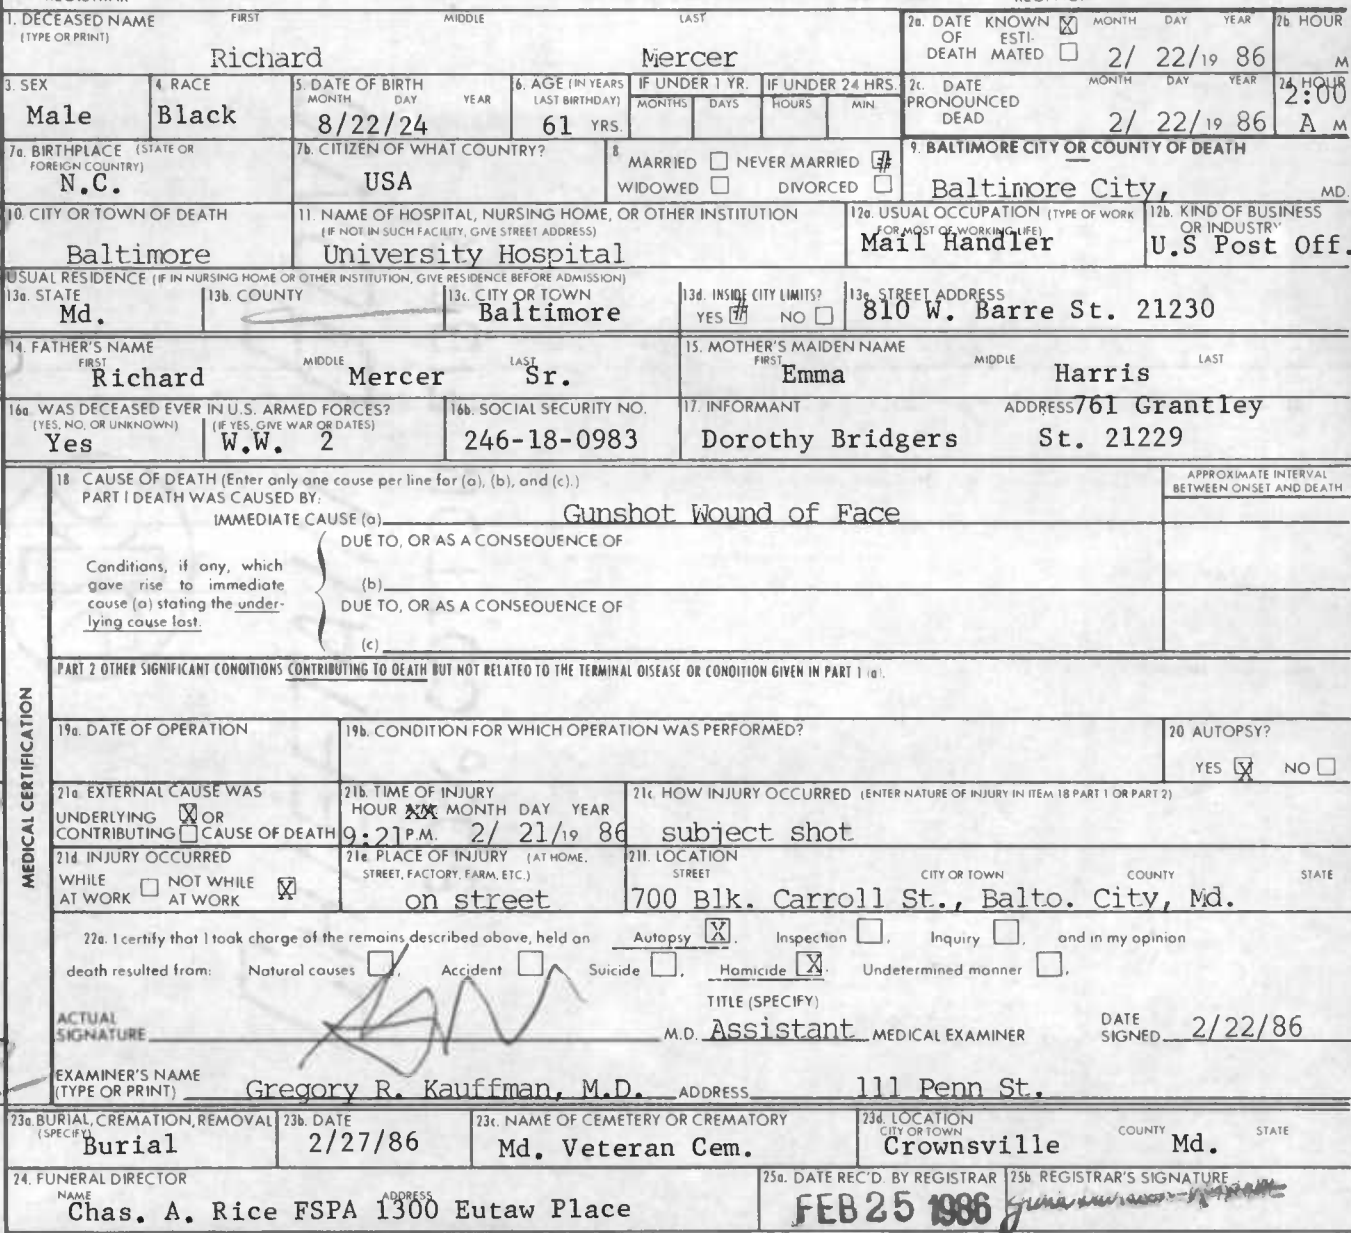 1. DECEASED NAME FIRST MIDDLE LAST
(TYPE OR PRINT)
Richard Mercer
2a. DATE OF DEATH KNOWN X ESTIMATED MONTH DAY YEAR
2/ 22/19 86
2b. HOUR
M
3. SEX
Male
4. RACE
Black
5. DATE OF BIRTH
MONTH DAY YEAR
8/22/24
6. AGE (IN YEARS LAST BIRTHDAY)
61 YRS.
IF UNDER 1 YR.
MONTHS DAYS
IF UNDER 24 HRS.
HOURS MIN.
2c. DATE PRONOUNCED DEAD MONTH DAY YEAR
2/ 22/19 86
2d. HOUR
2:00
A M
7a. BIRTHPLACE (STATE OR FOREIGN COUNTRY)
N.C.
7b. CITIZEN OF WHAT COUNTRY?
USA
8
MARRIED NEVER MARRIED #
WIDOWED DIVORCED
9. BALTIMORE CITY OR COUNTY OF DEATH
Baltimore City, MD.
10. CITY OR TOWN OF DEATH
Baltimore
11. NAME OF HOSPITAL, NURSING HOME, OR OTHER INSTITUTION
(IF NOT IN SUCH FACILITY, GIVE STREET ADDRESS)
University Hospital
12a. USUAL OCCUPATION (TYPE OF WORK FOR MOST OF WORKING LIFE)
Mail Handler
12b. KIND OF BUSINESS OR INDUSTRY
U.S Post Off.
USUAL RESIDENCE (IF IN NURSING HOME OR OTHER INSTITUTION, GIVE RESIDENCE BEFORE ADMISSION)
13a. STATE
Md.
13b. COUNTY
13c. CITY OR TOWN
Baltimore
13d. INSIDE CITY LIMITS?
YES # NO
13e. STREET ADDRESS
810 W. Barre St. 21230
14. FATHER'S NAME
FIRST MIDDLE LAST
Richard Mercer Sr.
15. MOTHER'S MAIDEN NAME
FIRST MIDDLE LAST
Emma Harris
16a. WAS DECEASED EVER IN U.S. ARMED FORCES?
(YES, NO, OR UNKNOWN) (IF YES, GIVE WAR OR DATES)
Yes W.W. 2
16b. SOCIAL SECURITY NO.
246-18-0983
17. INFORMANT ADDRESS
Dorothy Bridgers 761 Grantley
St. 21229
MEDICAL CERTIFICATION
18 CAUSE OF DEATH (Enter only one cause per line for (a), (b), and (c).)
PART I DEATH WAS CAUSED BY:
APPROXIMATE INTERVAL
BETWEEN ONSET AND DEATH
IMMEDIATE CAUSE (a) Gunshot Wound of Face
DUE TO, OR AS A CONSEQUENCE OF
Conditions, if any, which
gave rise to immediate
cause (a) stating the under-
lying cause last.
(b)
DUE TO, OR AS A CONSEQUENCE OF
(c)
PART 2 OTHER SIGNIFICANT CONDITIONS CONTRIBUTING TO DEATH BUT NOT RELATED TO THE TERMINAL DISEASE OR CONDITION GIVEN IN PART 1 (a).
19a. DATE OF OPERATION
19b. CONDITION FOR WHICH OPERATION WAS PERFORMED?
20 AUTOPSY?
YES X NO
21a EXTERNAL CAUSE WAS
UNDERLYING X OR
CONTRIBUTING CAUSE OF DEATH
21b. TIME OF INJURY
HOUR XX MONTH DAY YEAR
9:21 P.M. 2/ 21/19 86
21c HOW INJURY OCCURRED (ENTER NATURE OF INJURY IN ITEM 18 PART 1 OR PART 2)
subject shot
21d INJURY OCCURRED
WHILE AT WORK NOT WHILE AT WORK X
21e PLACE OF INJURY (AT HOME, STREET, FACTORY, FARM, ETC.)
on street
21f. LOCATION
STREET CITY OR TOWN COUNTY STATE
700 Blk. Carroll St., Balto. City, Md.
22a. I certify that I took charge of the remains described above, held an Autopsy X. Inspection , Inquiry , and in my opinion
death resulted from: Natural causes , Accident Suicide , Homicide X. Undetermined manner ,
TITLE (SPECIFY)
ACTUAL
SIGNATURE M.D. Assistant MEDICAL EXAMINER DATE SIGNED 2/22/86
EXAMINER'S NAME
(TYPE OR PRINT) Gregory R. Kauffman, M.D. ADDRESS 111 Penn St.
23a. BURIAL, CREMATION, REMOVAL
(SPECIFY)
Burial
23b. DATE
2/27/86
23c. NAME OF CEMETERY OR CREMATORY
Md. Veteran Cem.
23d. LOCATION
CITY OR TOWN COUNTY STATE
Crownsville Md.
24. FUNERAL DIRECTOR
NAME ADDRESS
Chas. A. Rice FSPA 1300 Eutaw Place
25a. DATE REC'D. BY REGISTRAR
FEB 25 1986
25b. REGISTRAR'S SIGNATURE